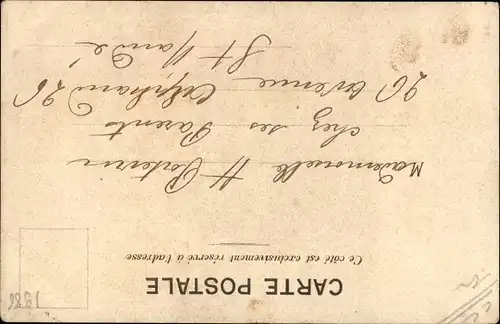 CARTE POSTALE
Ce côté est exclusivement réservé à l'adresse
Mademoiselle H
chez ses Parents
26 Avenue Alphand 26
St Mandé